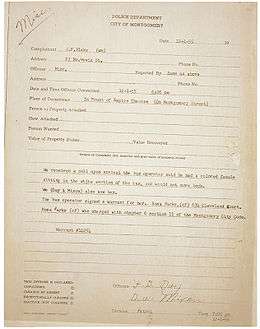 Misc
POLICE DEPARTMENT
CITY OF MONTGOMERY
Date 12-1-55 19
Complainant J.F. Blake (wm)
Address 27 No. Lewis St. Phone No.
Offense Misc. Reported By Same as above
Address Phone No.
Date and Time Offense Committed 12-1-55 6:06 pm
Place of Occurrence In Front of Empire Theatre (On Montgomery Street)
Person or Property Attacked
How Attacked
Person Wanted
Value of Property Stolen Value Recovered
We received a call upon arrival the bus operator said he had a colored female
sitting in the white section of the bus, and would not move back.
We (Day & Mixon) also saw her.
The bus operator signed a warrant for her. Rosa Parks, (cf) 634 Cleveland Court.
Rosa Parks (cf) was charged with chapter 6 section 11 of the Montgomery City Code.
Warrant #14254
THIS OFFENSE IS DECLARED:
UNFOUNDED
CLEARED BY ARREST
EXCEPTIONALLY CLEARED
INACTIVE (NOT CLEARED)
Officers F. B. Day
D. W. Mixon
Division Patrol